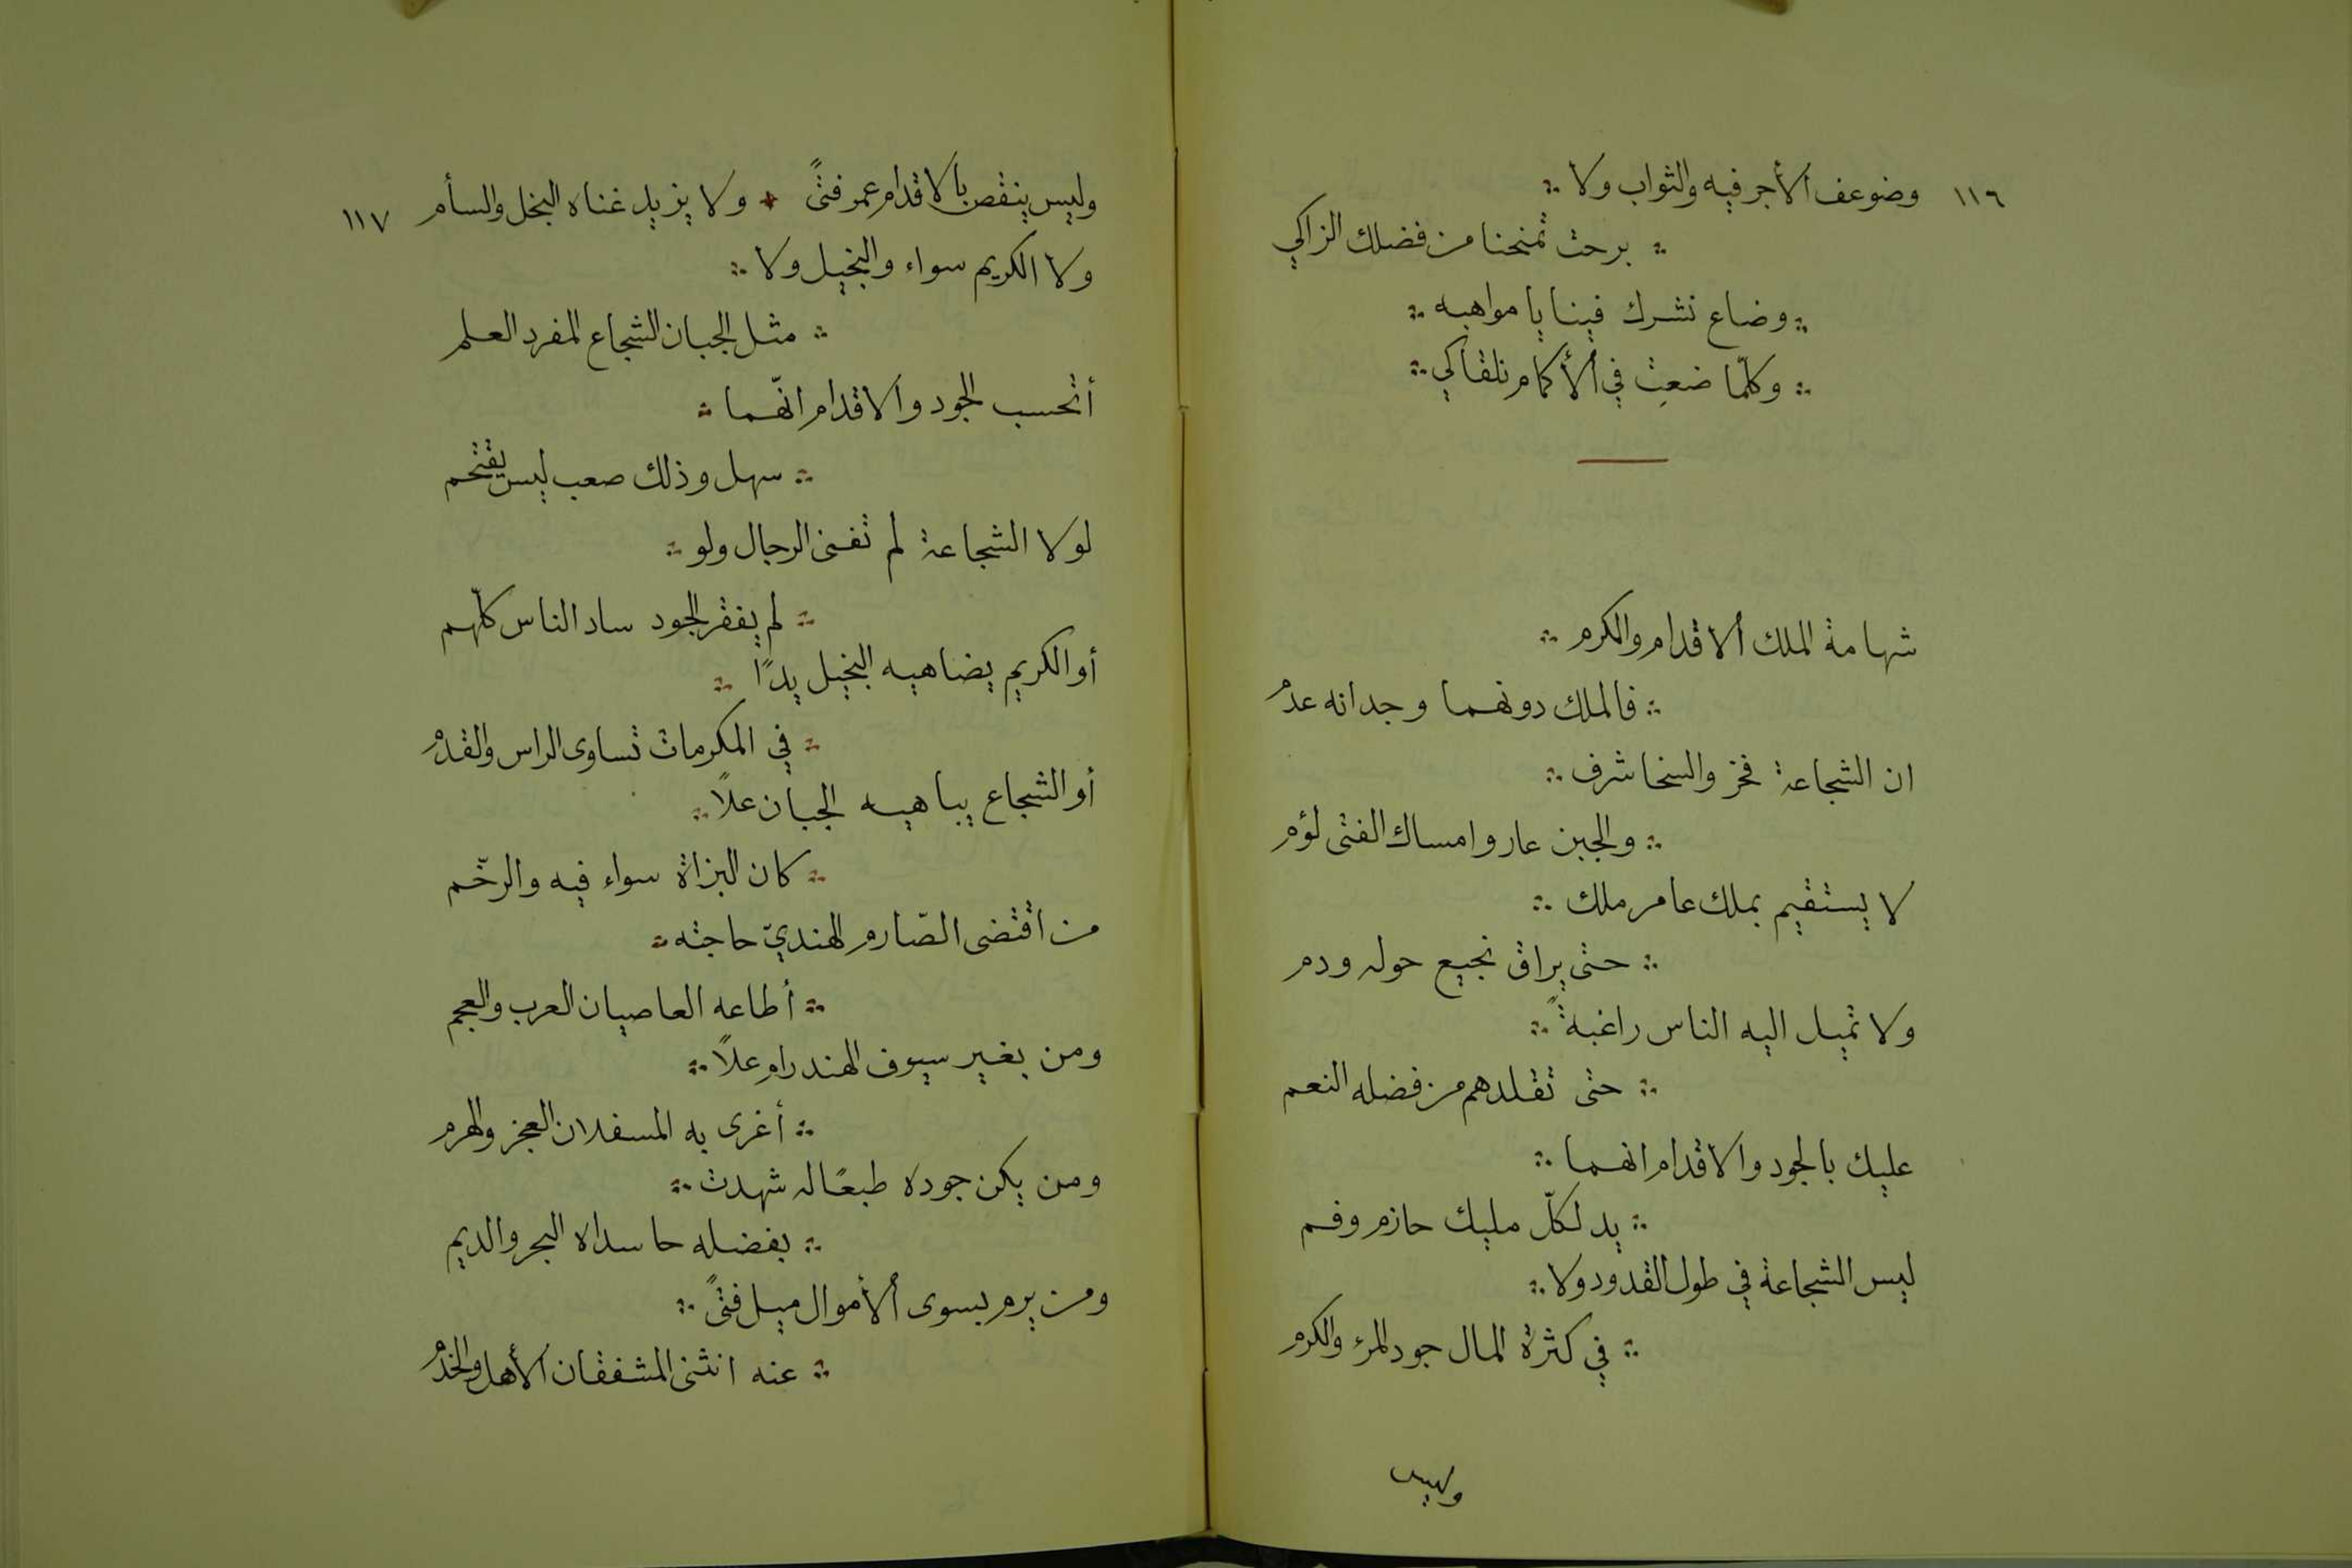 ١١٦ وضوعف الأجر فيه والثواب ولا ∴
∴ برحت تمنحنا من فضلك الزاكي
∴ وضاع نشرك فينا يا مواهبه ∴
∴ وكلّما ضعتِ في الأكمام نلقاكي ∴
شهامة الملك الاقدام والكرم ∴
∴ فالملك دونهما وجدانه عدم
ان الشجاعة فخر والسخا شرف ∴
∴ والجبن عار وامساك الفتى لؤم
لا يستقيم بملك عامر ملك ∴
∴ حتى يراق نجيع حوله ودم
ولا تميل اليه الناس راغبةً ∴
∴ حتى تقلدهم من فضله النعم
عليك بالجود والاقدام انهما ∴
∴ يد لكلّ مليك حازم وفم
ليس الشجاعة في طول القدود ولا ∴
∴ في كثرة المال جود المرء والكرم
وليس
وليس ينقص بالاقدام عمر فتىً ٭ ولا يزيد غناه البخل والسأم ١١٧
ولا الكريم سواء والبخيل ولا ∴
∴ مثل الجبان الشجاع المفرد العلم
أتحسب الجود والاقدام انّهما ∴
∴ سهل وذلك صعب ليس يقتحم
لولا الشجاعة لم تفنى الرجال ولو ∴
∴ لم يفقر الجود ساد الناس كلّهم
أو الكريم يضاهيه البخيل يدًا ∴
∴ في المكرمات تساوى الراس والقدم
أو الشجاع يباهيه الجبان علاً ∴
∴ كان البزاة سواء فيه والرخّم
من اقتضى الصّارم الهنديّ حاجته ∴
∴ أطاعه العاصيان العرب والعجم
ومن بغير سيوف الهند رام علاً ∴
∴ أغرى به المسفلان العجز والهرم
ومن يكن جوده طبعًا له شهدت ∴
∴ بفضله حاسداه البحر والديم
ومن يرم بسوى الأموال ميل فتىً ∴
∴ عنه انثنى المشفقان الأهل والخدم